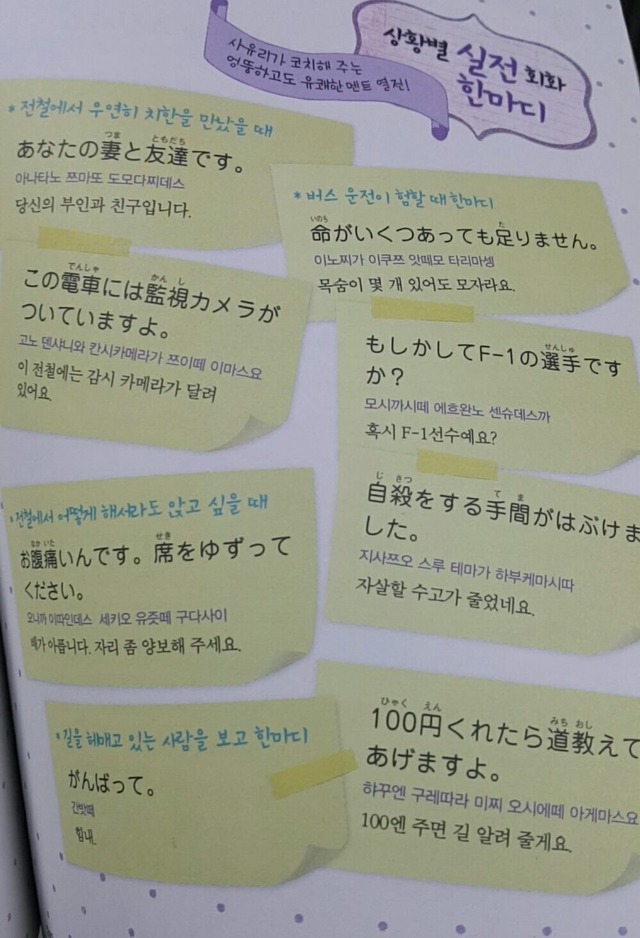 사유리가 코치해 주는
엉뚱하고도 유쾌한 멘트 열전!
상황별 실전 회화
한마디
* 전철에서 우연히 치한을 만났을 때
つま ともだち
あなたの妻と友達です。
아나타노 쯔마또 도모다찌데스
당신의 부인과 친구입니다.
でんしゃ かんし
この電車には監視カメラが
ついていますよ。
고노 덴샤니와 칸시카메라가 쯔이떼 이마스요
이 전철에는 감시 카메라가 달려
있어요.
* 버스 운전이 험할 때 한마디
いのち た
命がいくつあっても足りません。
이노찌가 이쿠쯔 앗떼모 타리마셍
목숨이 몇 개 있어도 모자라요.
せんしゅ
もしかしてF-1の選手です
か？
모시까시떼 에흐완노 센슈데스까
혹시 F-1선수예요?
じさつ てま
自殺をする手間がはぶけま
した。
지사쯔오 스루 테마가 하부케마시따
자살할 수고가 줄었네요.
* 전철에서 어떻게 해서라도 앉고 싶을 때
なかいた せき
お腹痛いんです。席をゆずって
ください。
오나까 이따인데스 세키오 유즛떼 구다사이
배가 아픕니다. 자리 좀 양보해 주세요.
* 길을 헤매고 있는 사람을 보고 한마디
がんばって。
간밧떼
힘내.
ひゃく えん みち おし
100円くれたら道教えて
あげますよ。
햐꾸엔 구레따라 미찌 오시에떼 아게마스요
100엔 주면 길 알려 줄게요.